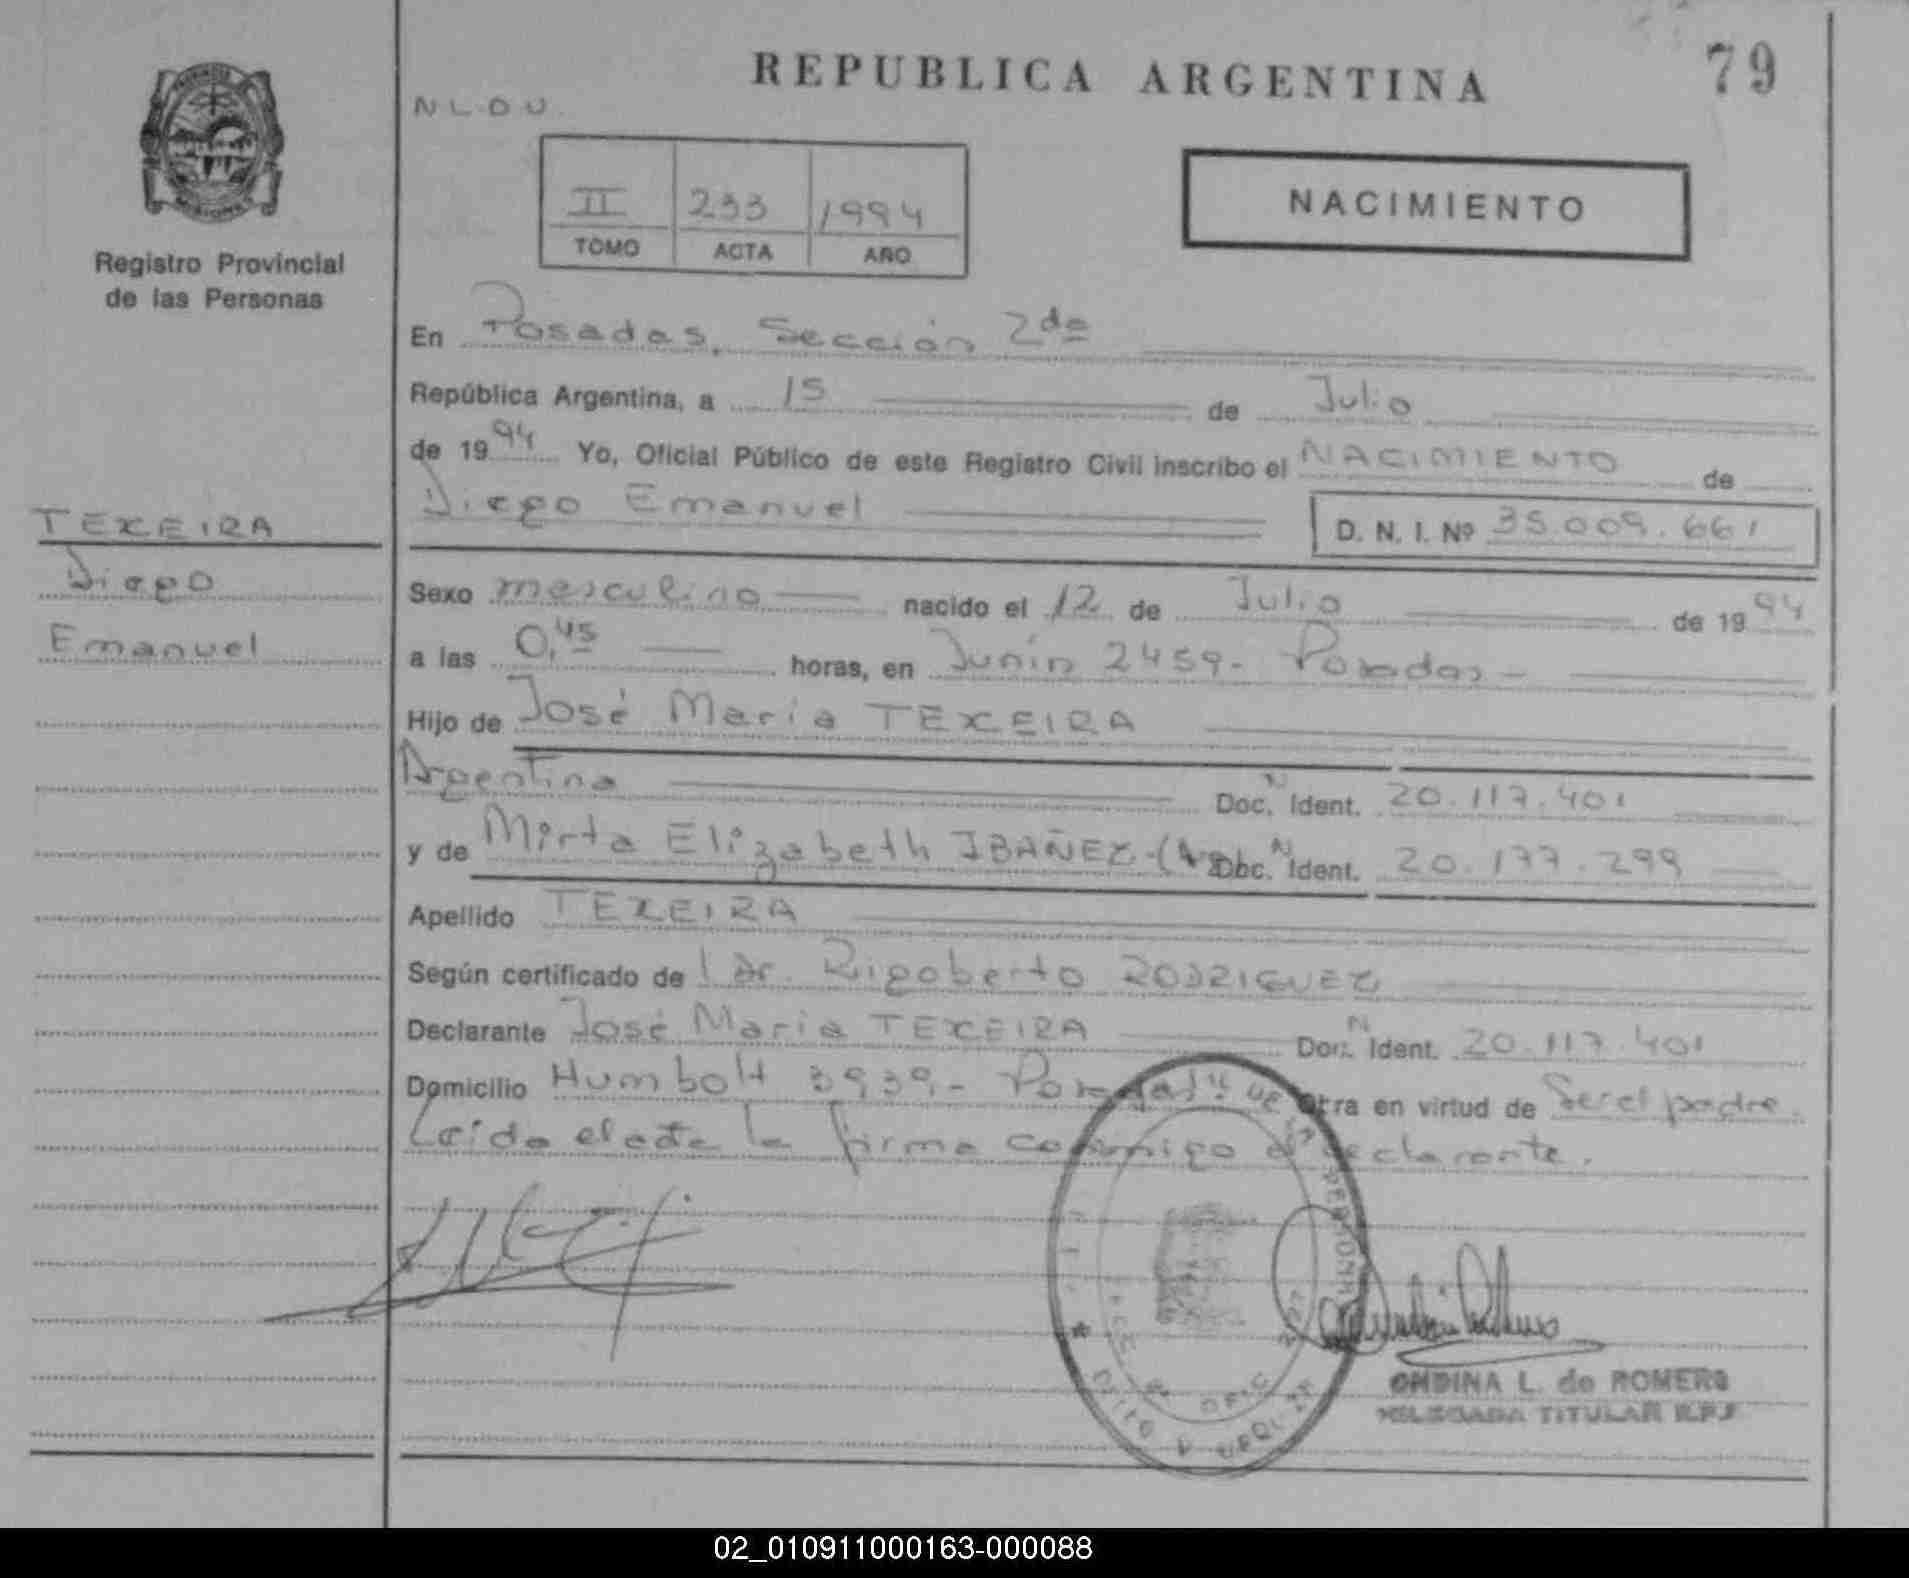 REPUBLICA ARGENTINA
79
N L D U.
II 233 1994
TOMO ACTA AÑO
NACIMIENTO
MISIONES
Registro Provincial
de las Personas
TEXEIRA
Diego
Emanuel
En Posadas, Sección 2da
República Argentina, a 15 de Julio
de 1994 Yo, Oficial Público de este Registro Civil inscribo el NACIMIENTO de
Diego Emanuel D. N. I. Nº 35.009.661
Sexo masculino nacido el 12 de Julio de 1994
a las 0,45 horas, en Junín 2459.- Posadas -
Hijo de José María TEXEIRA
Argentina Doc. N Ident. 20.117.401
y de Mirta Elizabeth IBAÑEZ - Doc. N Ident. 20.177.299
Apellido TEXEIRA
Según certificado de l Dr. Rigoberto RODRIGUEZ
Declarante José María TEXEIRA Doc. N Ident. 20.117.401
Domicilio Humbolt 3939.- Posadas.- Obra en virtud de Ser el padre.
Leída el acta la firma conmigo el declarante.
ONDINA L. de ROMERO
DELEGADA TITULAR R.P.P.
02_010911000163-000088